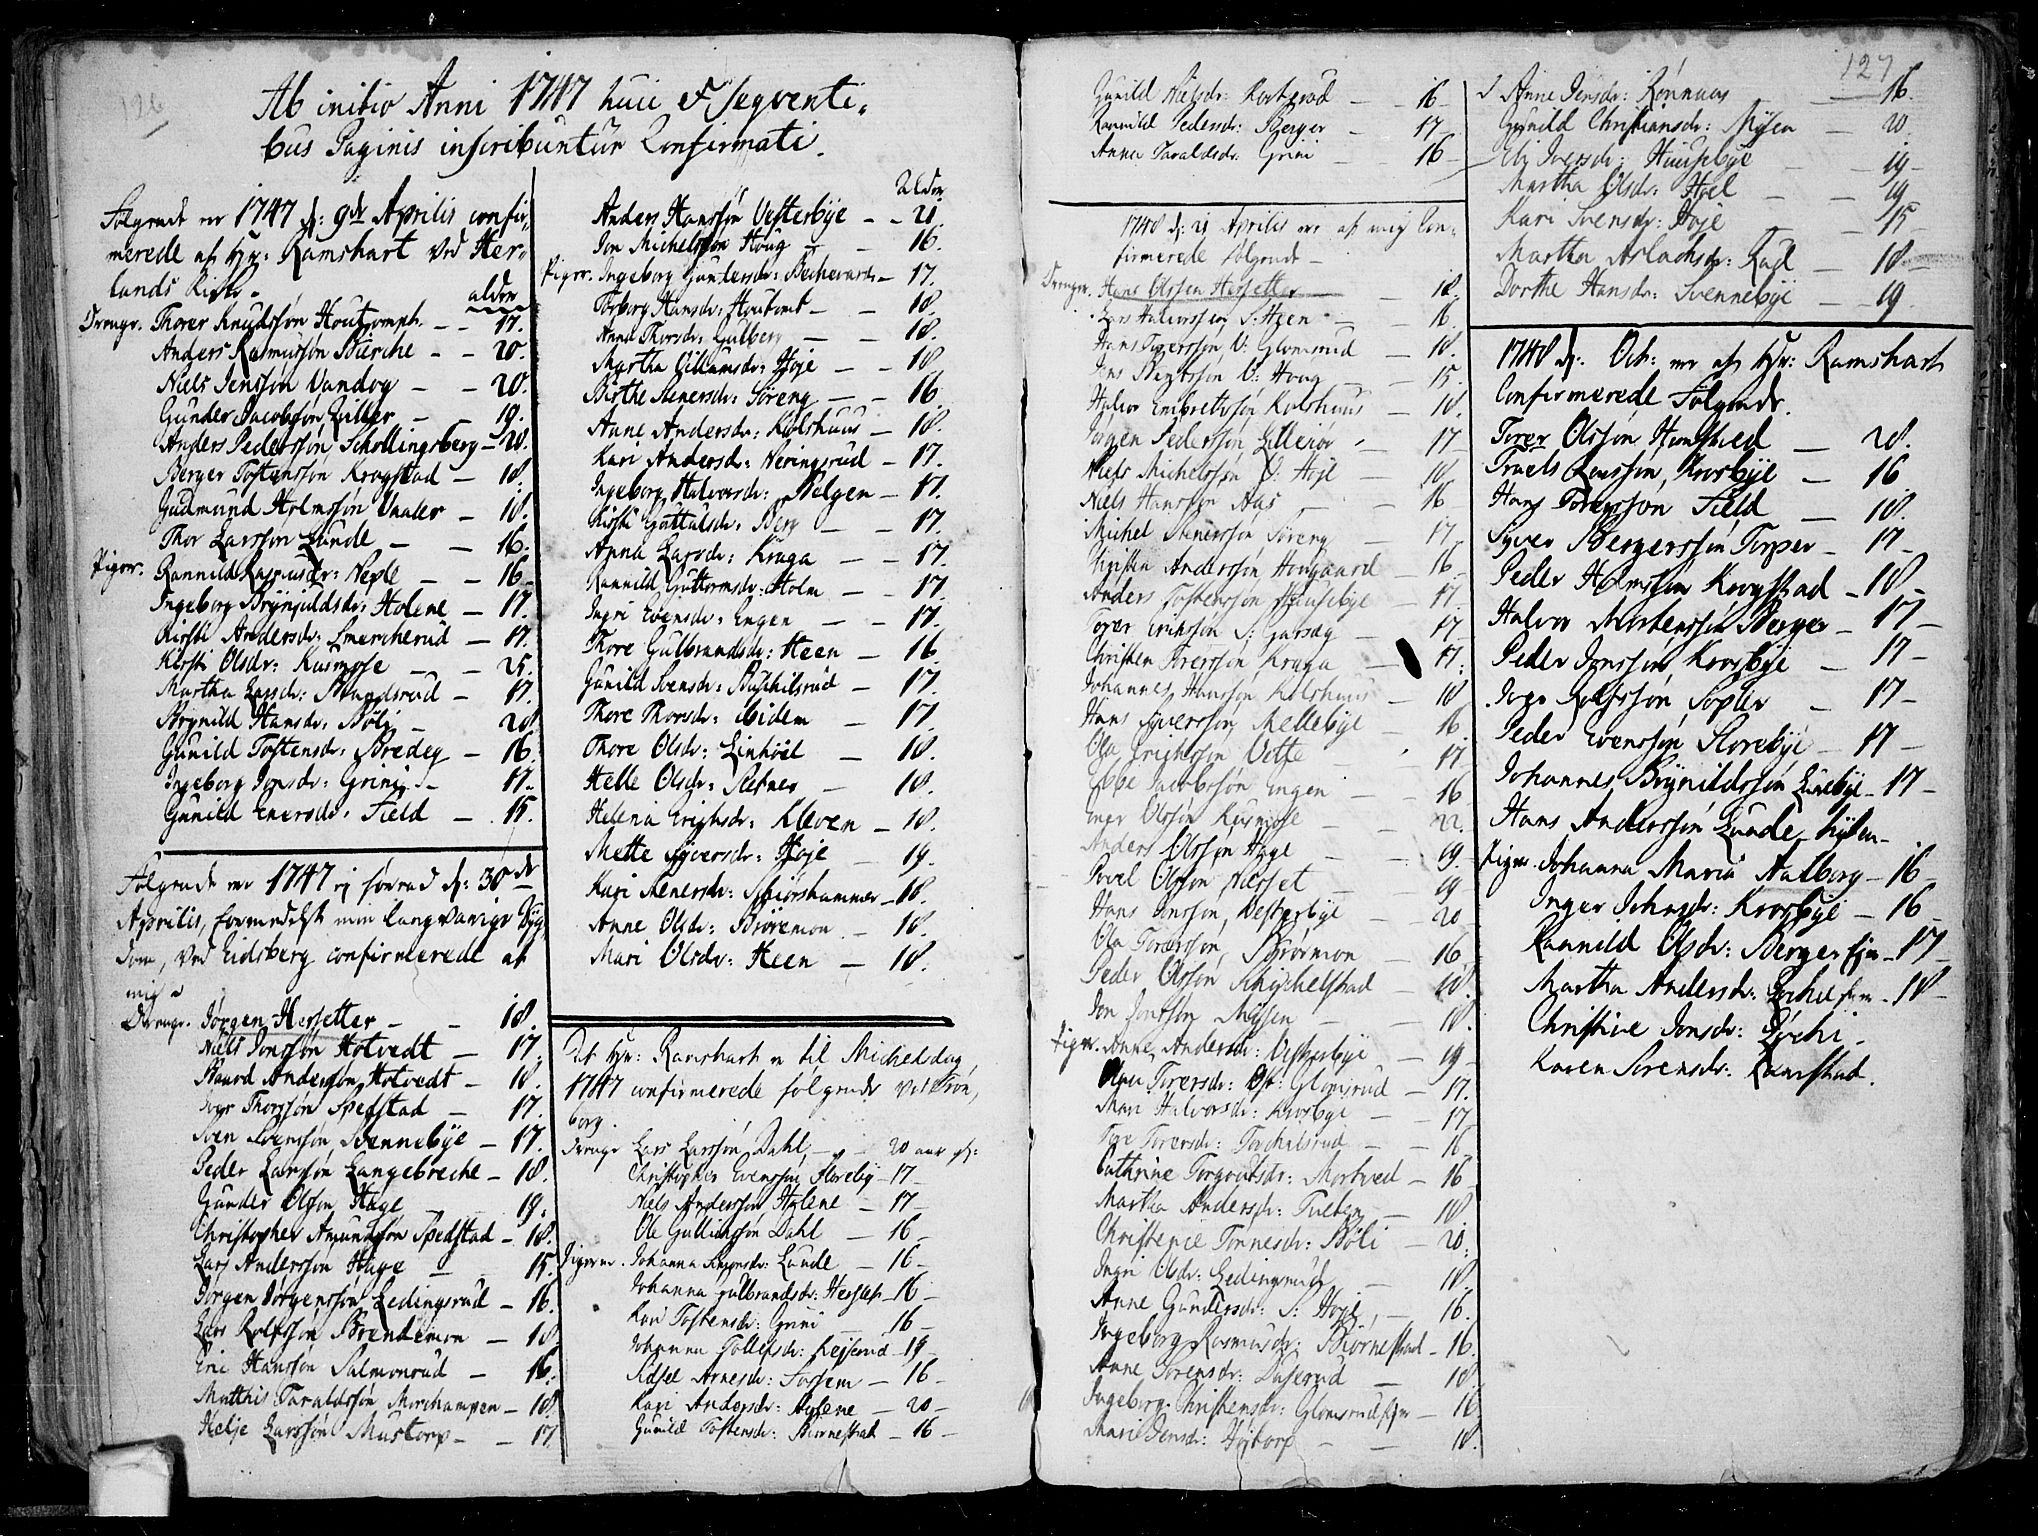 126
Ab initio Anni 1747 huic & seqventi-
bus Paginis inscribuntur Confirmati.
Følgende ere 1747 d: 9de Aprilis confir-
merede af Hr: Ramshart ved Her-
lands Kirke.
alder
Drenge. Thorer Knudssøn Houtomph. - - 17.
Anders Rasmussøn Bierche - - 20.
Niels Jenssøn Vandog - - 20.
Gunder Jacobssøn - - 19.
Anders Pederssøn Schollingsberg - 20.
Berger Tostenssøn Krogstad - 18.
Gudmund Holmssøn Vaaler - 18.
Thor Larssøn Lunde - - 16.
Piger. Rannild Rasmusdr: Neple - - 16
Ingeborg Brynjuldsdr: Holene - 17.
Kirsti Andersdr: Smercherud - 17.
Kirsti Olsdr: Kusmose - - 25.
Martha Larsdr: Strandsrud - 17.
Brynild Hansdr: Bøli - 20
Gunild Tostensdr: Bredeg - 16
Ingeborg Jonsdr: Grini - 17.
Gunild Enersdr: Field - 15.
Følgende ere 1747 d: 30de
Aprilis, formedelst min langvarige Syg-
dom, ved Eidsberg confirmerede af
mig
Drenge. Jørgen Hersetter - - 18.
Niels Jonssøn Hotvedt - 17.
Baard Anderssøn Hotvedt - 18.
Thorssøn Spedstad - 17.
Sven Svenssøn Svennebye - 17.
Peder Larssøn Langebreche - 18.
Gunder Olssøn Hage - - 19.
Christopher Amundssøn Spedstad - 18.
Lars Anderssøn Hage - 15.
Jørgen Jørgenssøn Ledingsrud - 16.
Lars Rolfssøn Brendemon - 18
Eric Hanssøn Salmonrud - 16.
Matthis Taraldssøn Morchampen - 18.
Helje Larssøn Mustorp - - 17.
Alder
Anders Hanssøn Vesterbye - - 21.
Jon Michelssøn Houg - - 16.
Piger. Ingeborg Gundersdr: Bechevard - 17.
Torborg Hansdr: Houtomt - - 18.
Anne Thorsdr: Gulberg - - 18.
Martha Villumsdr: Hoje - - 18
Birthe Stenersdr: Søreng - - 16
Anne Andersdr: Kolshuus - 18.
Kari Andersdr: Neringsrud - 17.
Ingeborg Halvorsdr: Helgen - 17.
Kirsti Guttulsdr: Berg - - 17.
Anna Larsdr: Kraga - - 17.
Rannild Guttormsdr: Holm - - 17.
Ingri Evensdr: Engen - - 17.
Thore Gulbrandsdr: Heen - 16
Gunild Svensdr: Buschilsrud - 17.
Thore Thorsdr: ibidem - 17.
Thore Olsdr: Linhoel - 18.
Helle Olsdr: - 18.
Helena Erichsdr: Kleven - 18.
Mette Syversdr: Hoje - 19.
Kari Stenersdr: Schiorshammer - 18.
Anne Olsdr: Brøremon - 18.
Mari Olsdr: Heen - 18.
Af Hr: Ramshart er til Michelsdag
1747 confirmerede følgende ved Trøn-
borg.
Drenge Lars Larssøn Dahl, - - 20 aar
Christopher Evenssøn Slorebÿ - 17 -
Niels Anderssøn Holene - 17 -
Ole Gullichssøn Dahl - 16 -
Pigerne. Johanna Simensdr: Lunde - 16 -
Johanna Gulbrandsdr: - 16 -
Kari Tostensdr: Grini - 16 -
Johanna Tollefsdr: - 19 -
Sidsel Arnesdr: Fossem - 16 -
Kari Andersdr: Holene - 20 -
Gunild Tostensdr: Biørnestad - 16 -
127
Gunild Nielsdr: - - 16 -
Rannild Pedersdr: Berger - 17 -
Anna Taraldsdr: Grini - - 16 -
1748 d: 21 Aprilis ere af mig Con-
firmerede følgende -
Drenge. Hans Olssøn Hersetter - - 18.
Lars Halvorssøn S: Heen - - 16
Hans Torerssøn V: Glomsrud - 18.
Jens V: Houg - 15.
Halvor Embrethssøn Kolshuus - 18.
Jørgen Pederssøn Lillerør - 17 -
Niels Michelssøn V: Hoje - 18
Niels Hanssøn Aas - - 16
Michel Stenerssøn Søreng - 17
Christen Anderssøn Hougaard - 16 -
Anders Tostenssøn Huusebye - 17.
Torer Erikssøn S: - 17 -
Christen Torerssøn Kraga - 17.
Johannes Hanssøn Kolshuus - 18
Hans Syverssøn Mellebye - 16
Ola Erichssøn Vette - 17
Ebbe Jacobssøn Engen - - 16
Olssøn Kusmose - - 22.
Anders Olssøn Hage - - 19.
Povel Olssøn Næsset - 19
Hans Jonssøn Vesterbye - - 20
Ola Torerssøn Brørmon - 16
Peder Olssøn Schischelstad - 18.
Jon Jonssøn Mysen - - 18.
Piger. Anne Andersdr: Vesterbye - 19 -
Torersdr: Øst: Glomsrud - 17.
Mari Halvorsdr: Krosbye - 17
Tore Torersdr: Torchelsrud - - 16
Cathrine Torgoutsdr: Mortved - 16
Martha Andersdr: - 18
Christense Tonnesdr: Bøli - 20.
Ingri Olsdr: Ledingsrud - 18.
Anne Gundersdr: S: Hoje - 16.
Ingeborg Rasmusdr: Biørnestad - 16.
Anne Sørensdr: - 18
Ingeborg Christensdr: Glomsrud - 16
Marie Jensdr: Hojtorp - - 18.
Anne Jensdr: Rønnaas - 16.
Gunild Christiansdr: Mysen - 20.
Eli Iversdr: Huusebye - 19 -
Martha Olsdr: Hoel - - 19
Kari Svensdr: Hoje - - 15
Martha Aslachsdr: - 18 -
Dorthe Hansdr: Svennebye - 19
1748 d: Oct: ere af Hr: Ramshart
Confirmerede Følgende.
Torer Olssøn Homstved - 28.
Truels Larssøn Krosbye - 16
Hans Torerssøn Field - 18.
Syver Bergerssøn Torper - 17 -
Peder Holmssøn Krogstad - 18 -
Halvor Mortenssøn Berger - 17 -
Peder Jonssøn Krosbye - 17 -
Rolfssøn Sopler - 17 -
Peder Evenssøn Slorebye - 17 -
Johannes Brynildssøn Lundebye - 17 -
Hans Anderssøn Lunde
Piger. Johanna Maria Aalborg - 16 -
Inger Johnsdr: Krosbye - 16 -
Rannild Olsdr: Berger - 17 -
Martha Andersdr: - 18 -
Christine Jonsdr:
Karen Sørensdr: Ramstad.